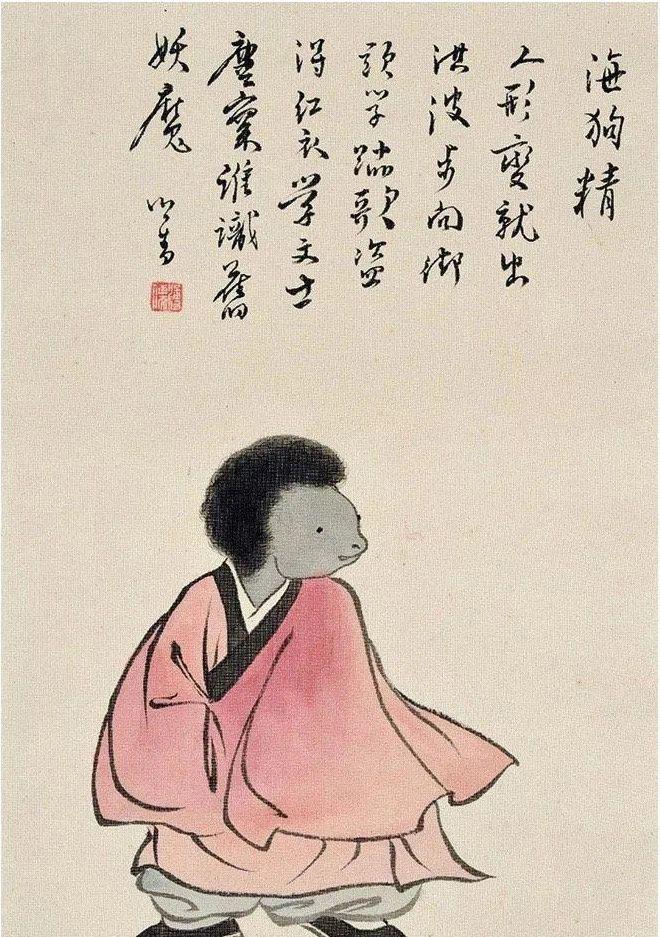 海狗精
人形變就出
洪波步向街
頭學踏歌盜
得紅衣學文士
塵寰誰識舊
妖魔 心畬
溥儒